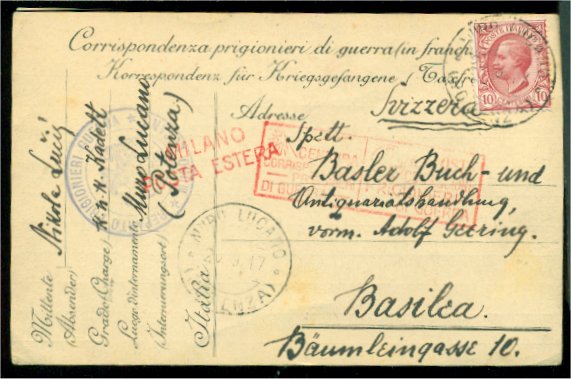 Corrispondenza prigionieri di guerra (in franch.
Korrespondenz für Kriegsgefangene (Taxfre
Mittente
(Absender) Nikola Lucić
Grado (Charge) k.u.k. Kadett
Luogo d'internamento Muro Lucano
(Internierungsort) (Potenza)
Italia
Adresse
Svizzera
Spett.
Basler Buch- und
Antiquariatshandlung,
vorm. Adolf Geering.
Basilea.
Bäumleingasse 10.
MILANO
POSTA ESTERA
PRIGIONIERI GUERRA
CENSURA
DI GUERRA
MURO LUCANO
(POTENZA)
17
10 10